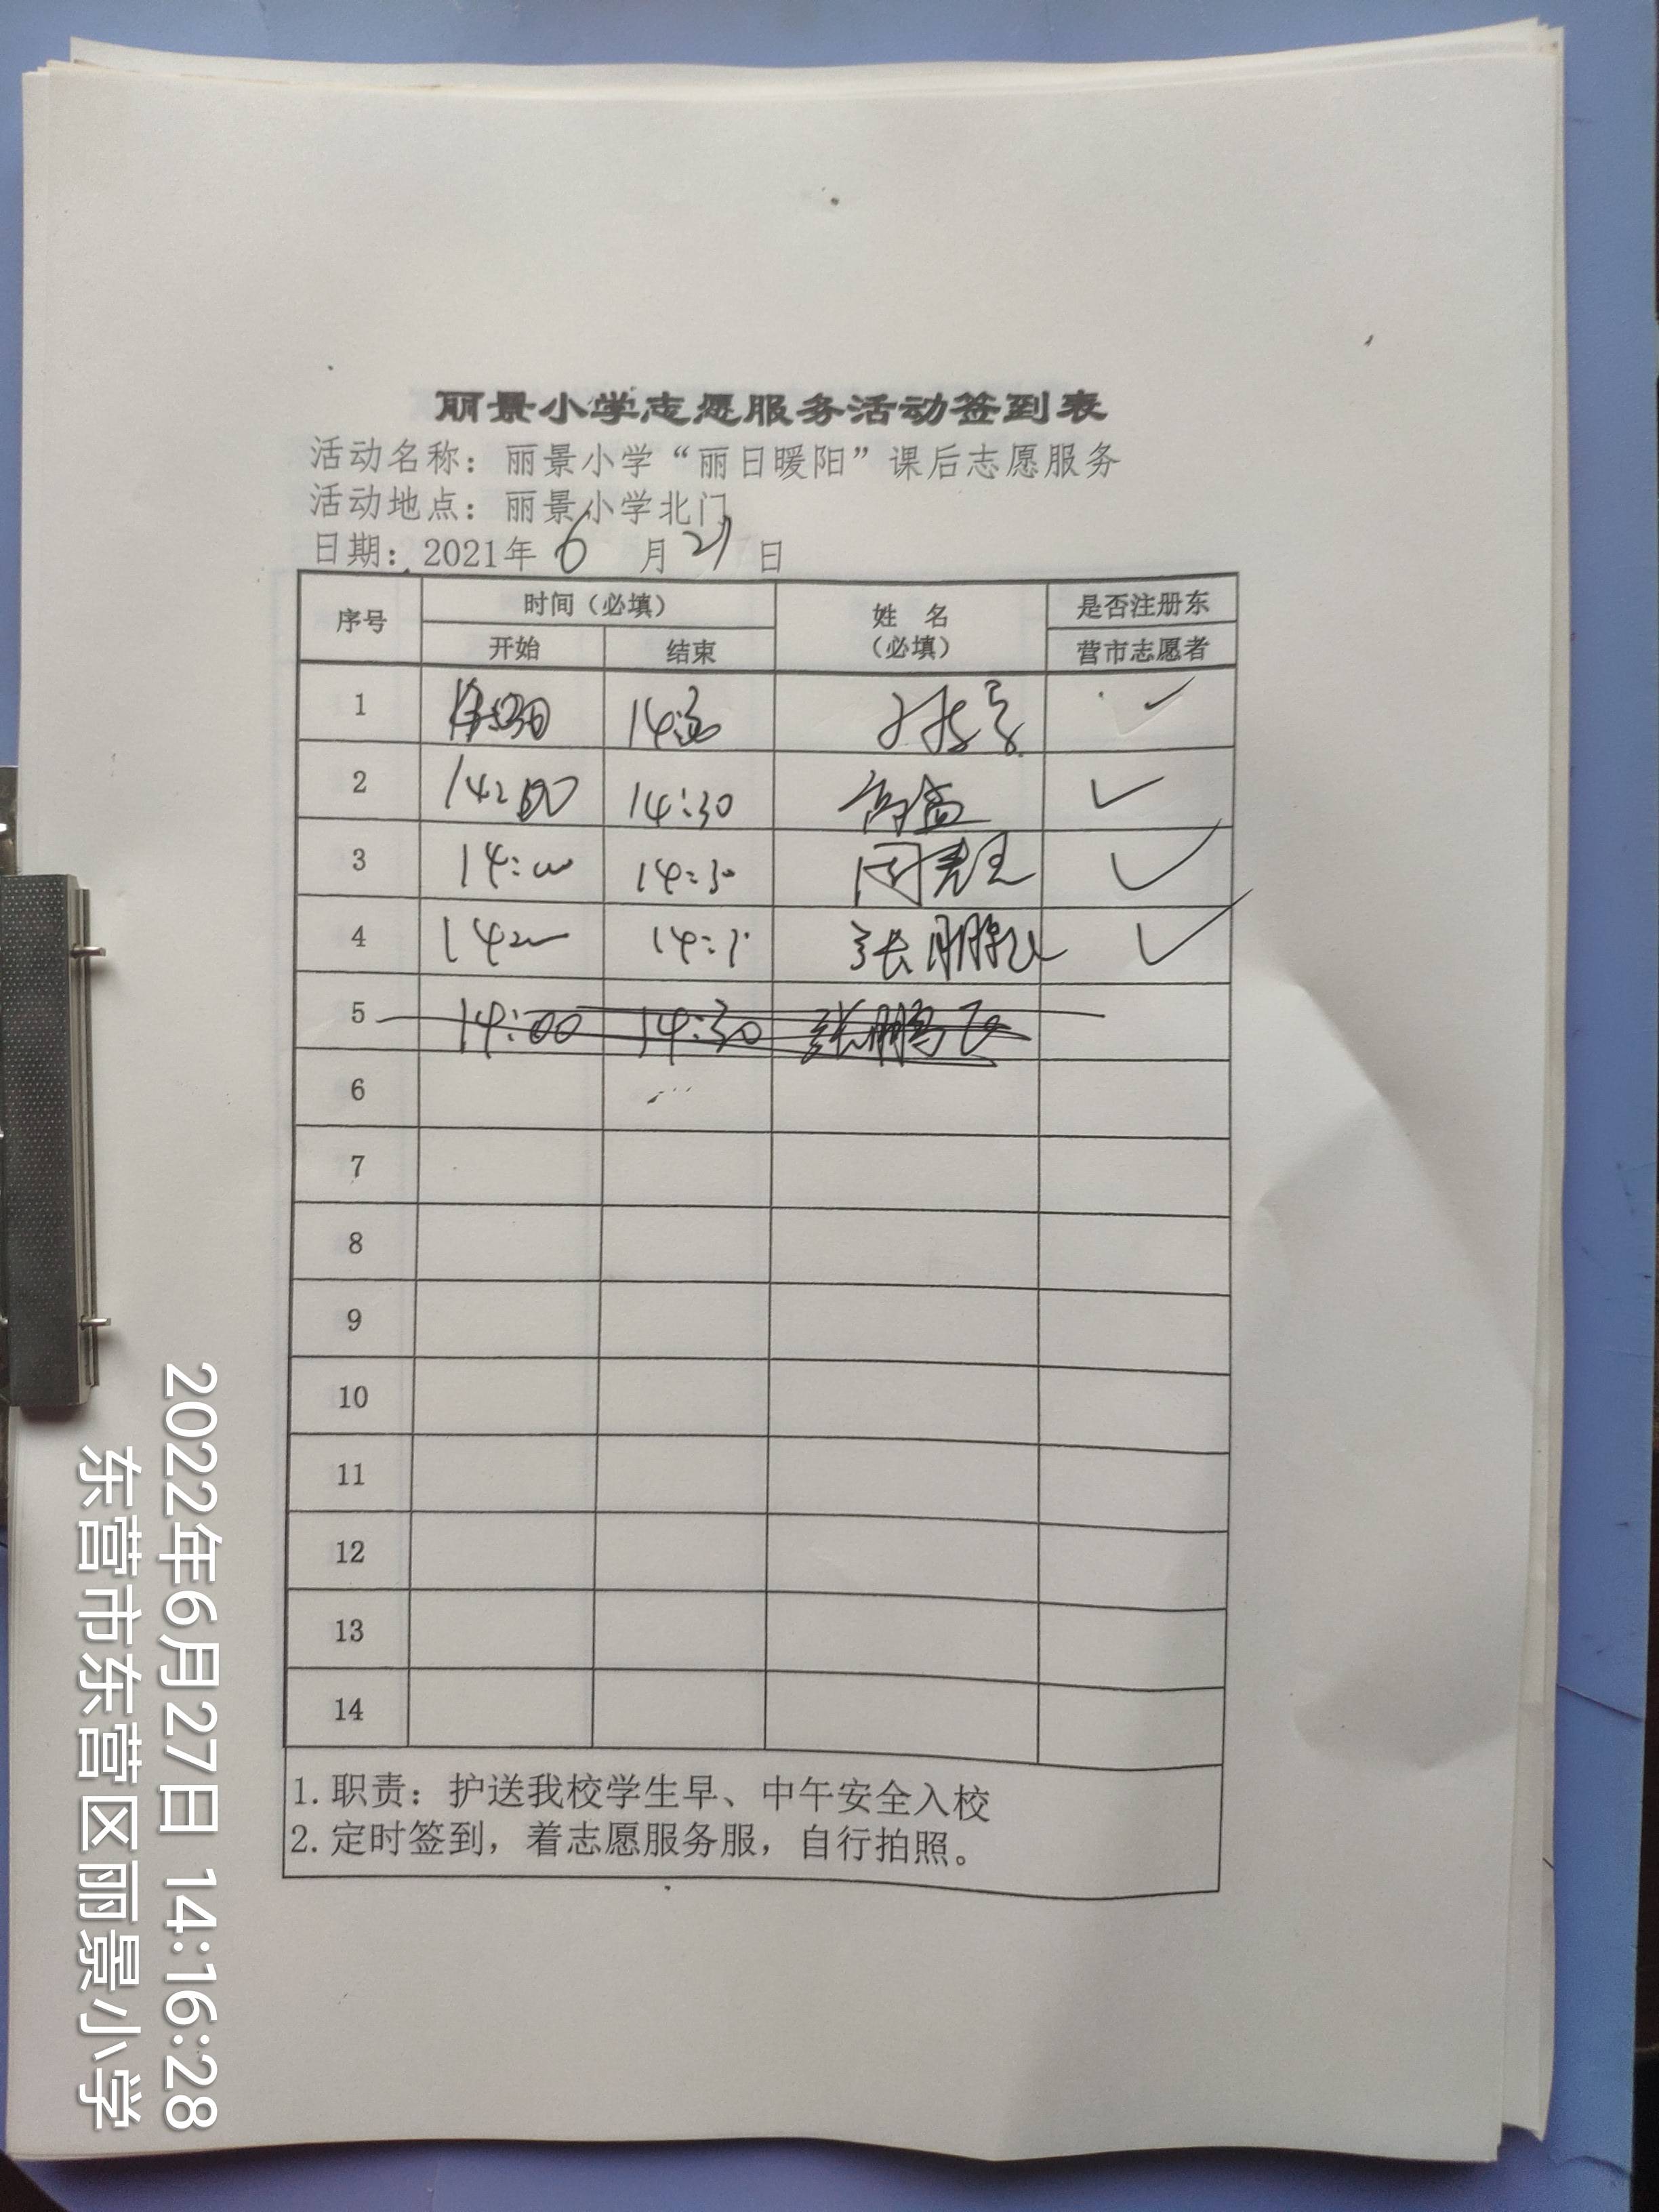 丽景小学志愿服务活动签到表
活动名称：丽景小学“丽日暖阳”课后志愿服务
活动地点：丽景小学北门
日期：2021年 6 月 21 日
序号 时间（必填） 姓 名（必填） 是否注册东营市志愿者
开始 结束
1 ✓
2 14:00 14:30 ✓
3 14:00 14:30 ✓
4 1400 张鹏飞 ✓
5 14:00 14:30 张鹏飞
6
7
8
9
10
11
12
13
14
1. 职责：护送我校学生早、中午安全入校
2. 定时签到，着志愿服务服，自行拍照。
2022年6月27日 14:16:28
东营市东营区丽景小学